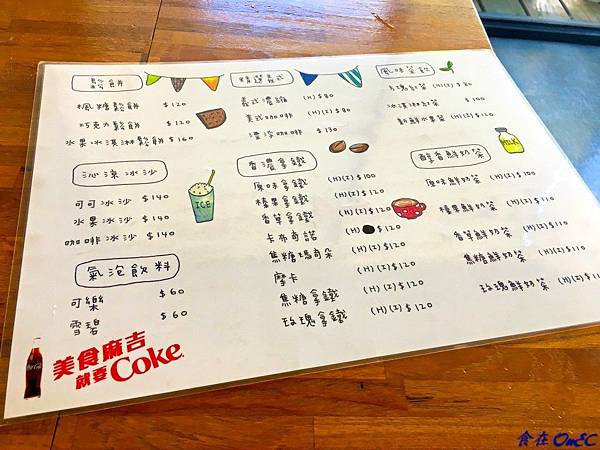 鬆餅
楓糖鬆餅 $120
巧克力鬆餅 $120
水果冰淇淋鬆餅 $160
沁涼冰沙
可可冰沙 $140
水果冰沙 $140
咖啡冰沙 $140
ICE
氣泡飲料
可樂 $60
雪碧 $60
美食麻吉
就要Coke
精選義式
義式濃縮 (H) $80
美式咖啡 (H)(I) $80
漂浮咖啡 $130
香濃拿鐵
原味拿鐵 (H)(I) $100
榛果拿鐵 (H)(I) $120
香草拿鐵 (H)(I) $120
卡布奇諾 (H) $120
焦糖瑪奇朵 (H)(I) $120
摩卡 (H)(I) $120
焦糖拿鐵 (H)(I) $120
玫瑰拿鐵 (H)(I) $120
風味茶飲
冰淇淋紅茶 $100
新鮮水果茶 (H) $120
MILK
醇香鮮奶茶
原味鮮奶茶 (H)(I) $100
榛果鮮奶茶 (H)(I) $110
香草鮮奶茶 (H)(I) $110
焦糖鮮奶茶 (H)(I) $110
玫瑰鮮奶茶 (H)(I) $110
食在 OnEC